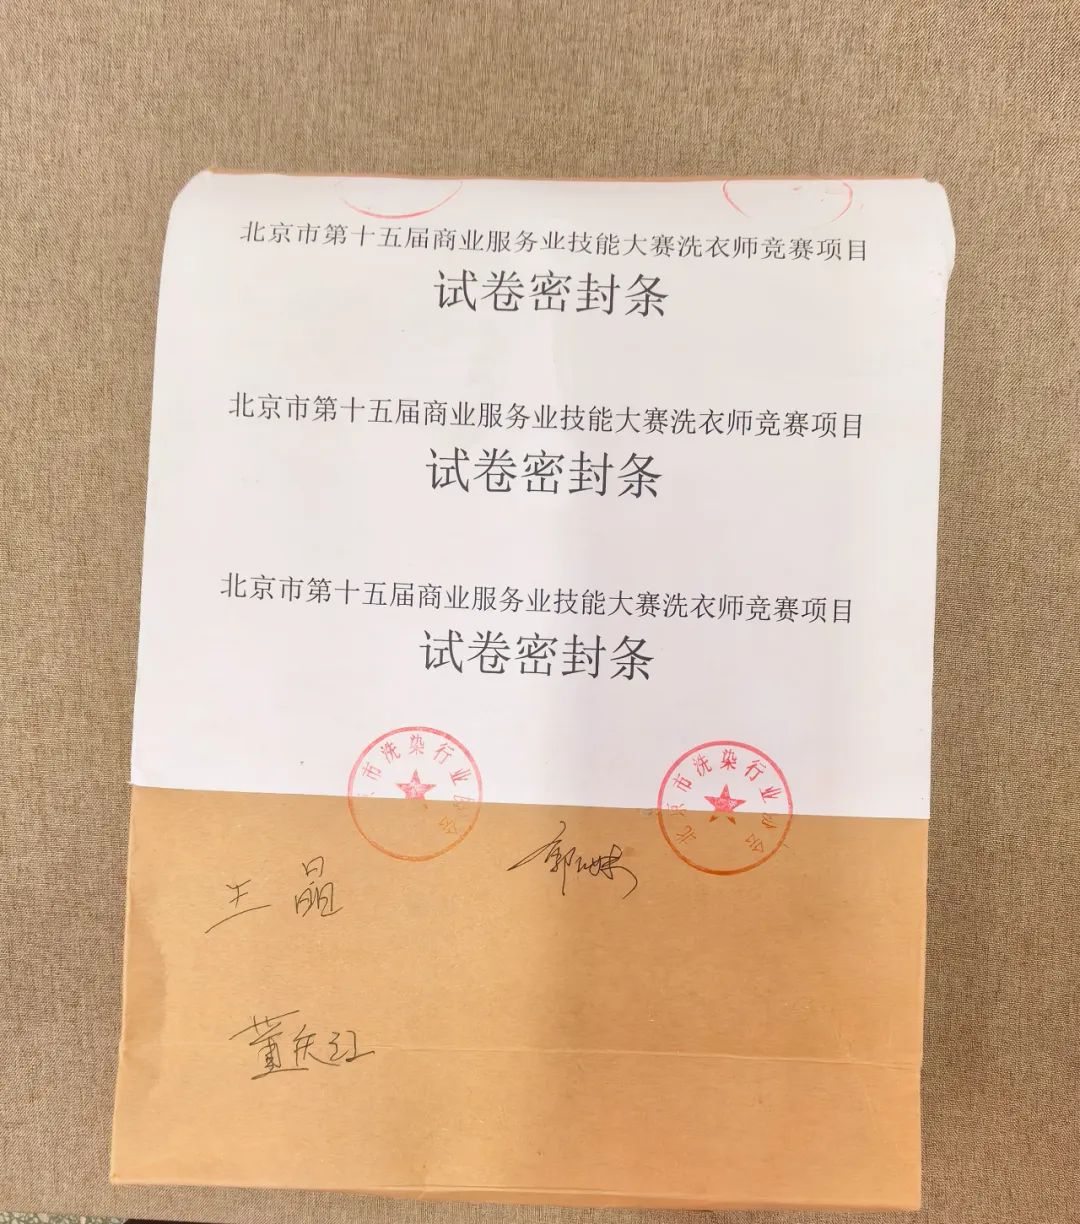 北京市第十五届商业服务业技能大赛洗衣师竞赛项目
试卷密封条
北京市第十五届商业服务业技能大赛洗衣师竞赛项目
试卷密封条
北京市第十五届商业服务业技能大赛洗衣师竞赛项目
试卷密封条
京市洗染行业协会
北京市洗染行业协会
王晶
董庆红